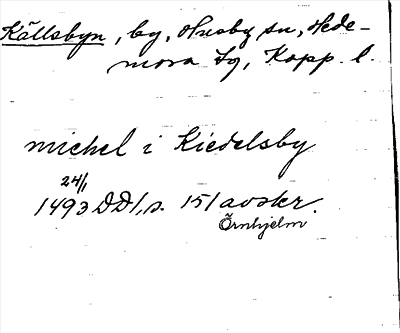 Källsbyn, by, Husby sn, Hede-
mora tg, Kopp. l.
michel i Kiedelsby
24/1
1493 DD1, s. 151 avskr.
Örnhjelm